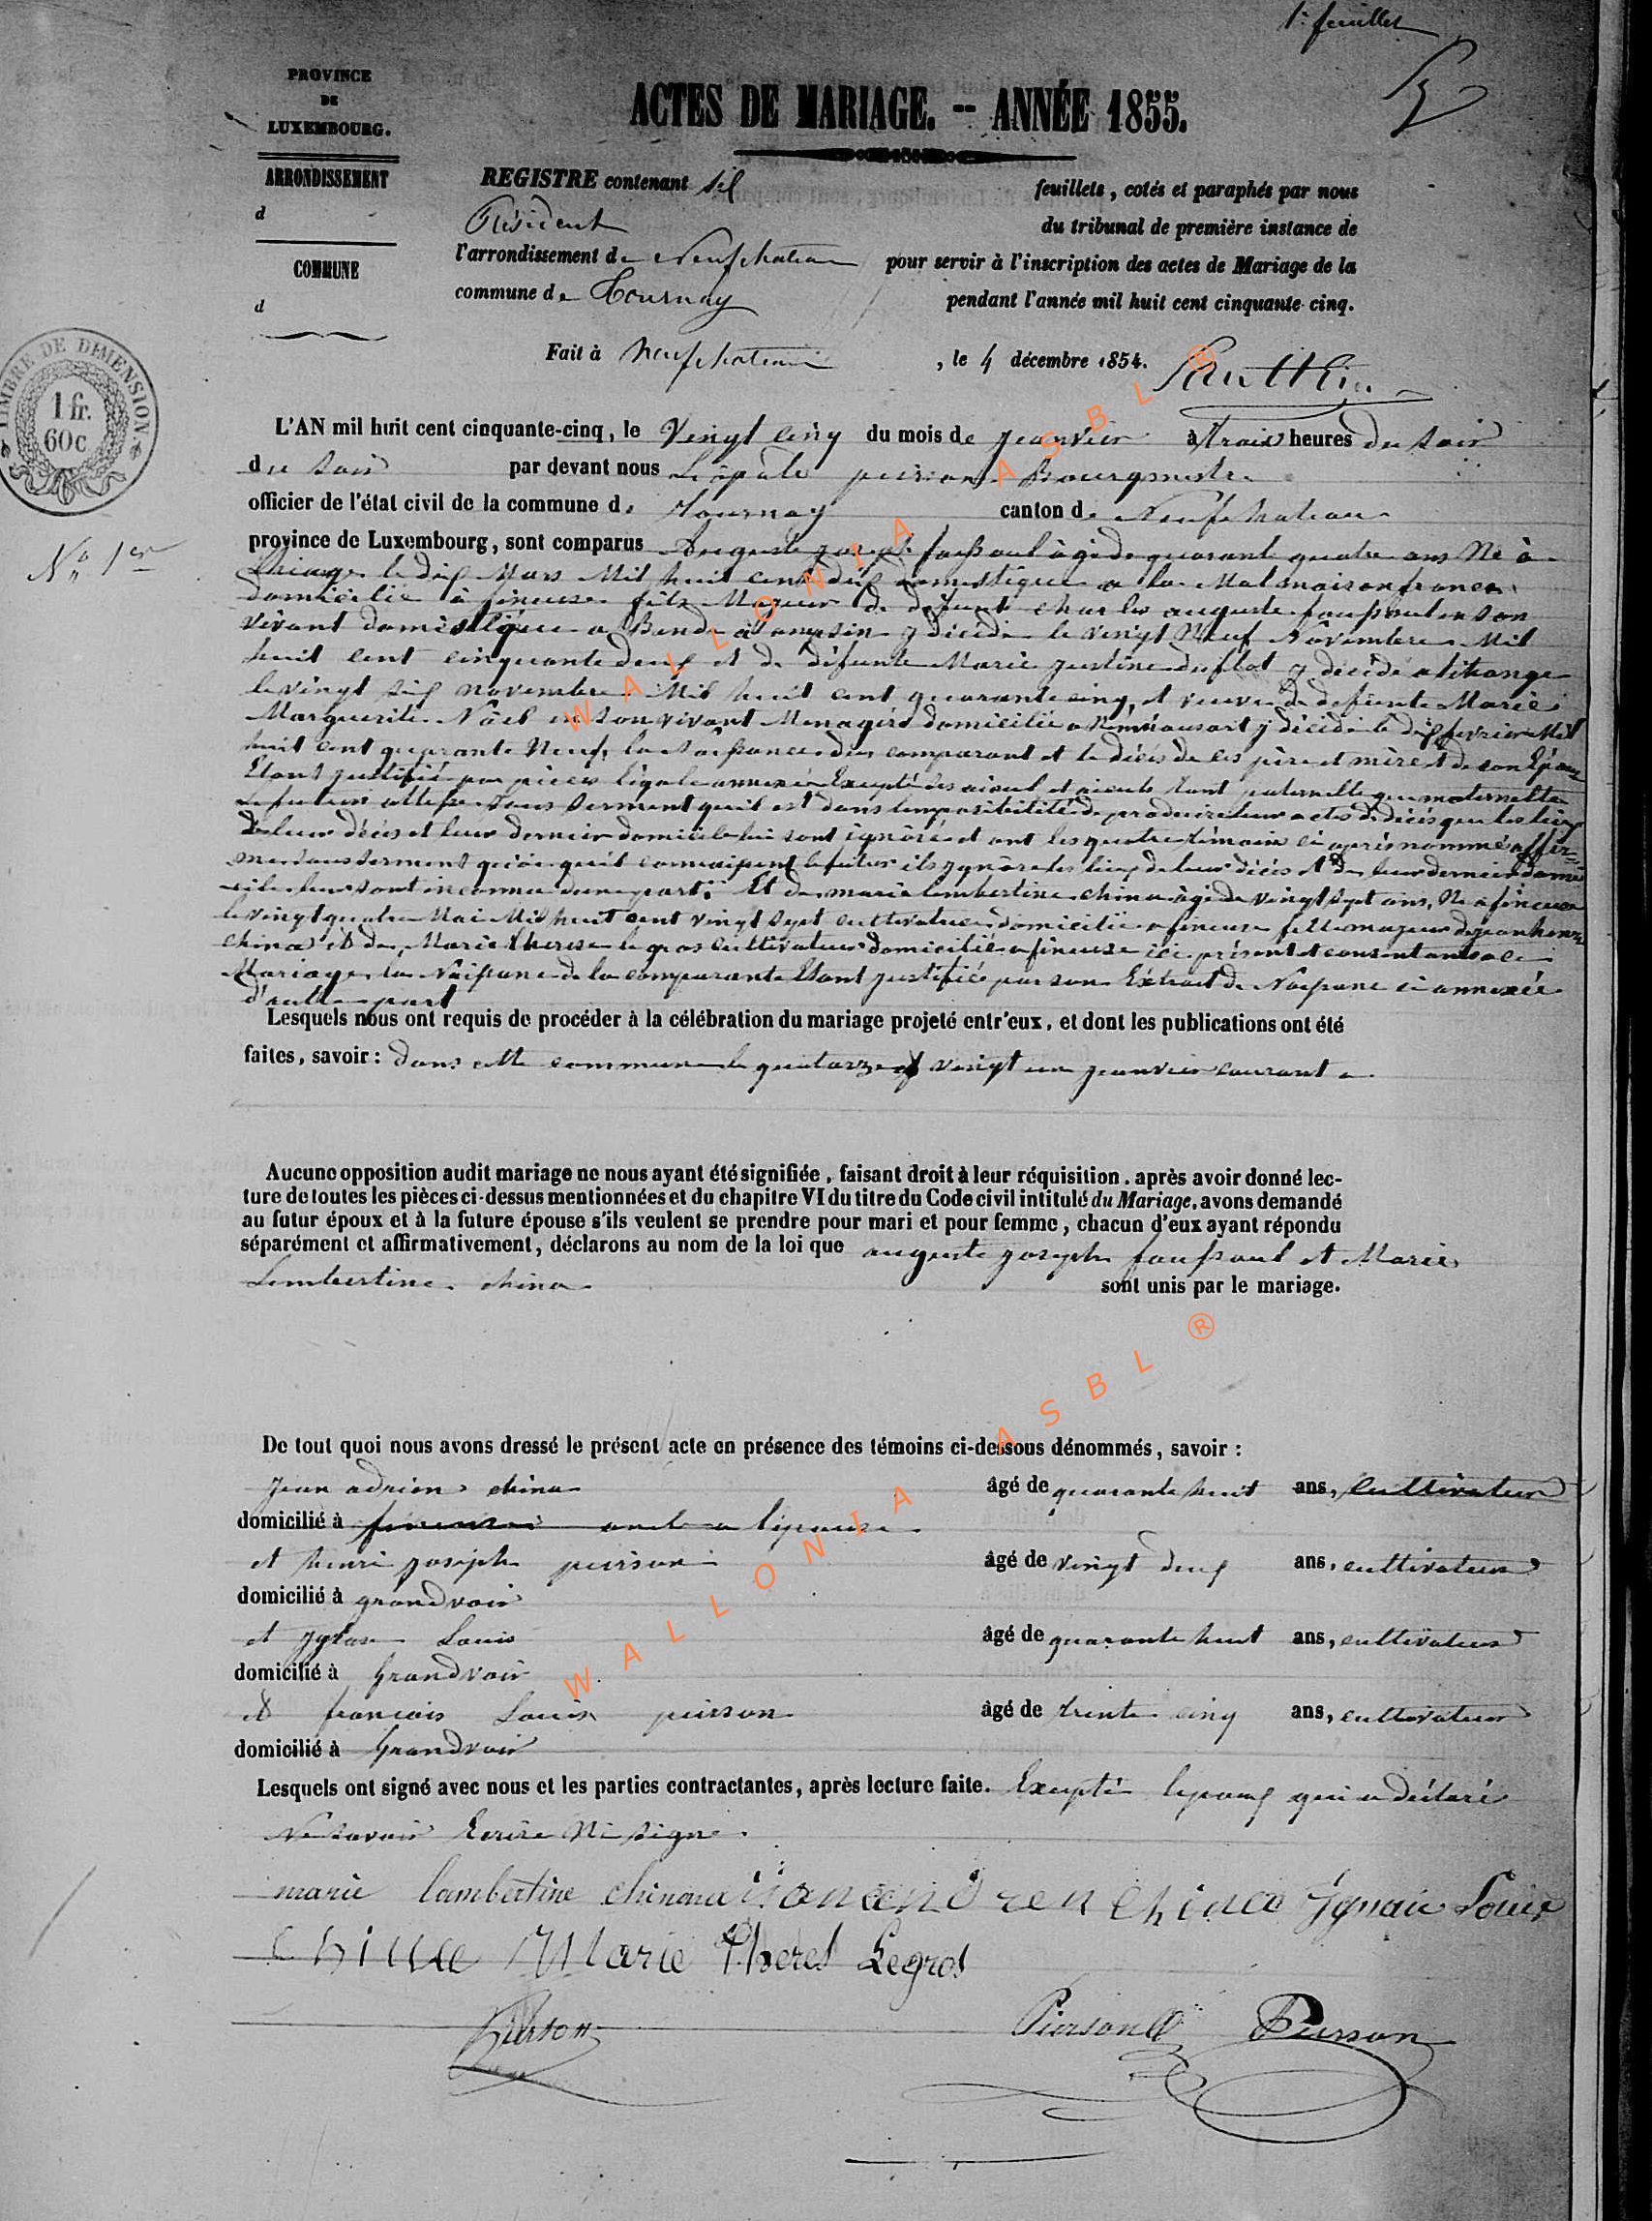 1r feuillet
PROVINCE
DE
LUXEMBOURG.
ACTES DE MARIAGE. -- ANNÉE 1855.
ARRONDISSEMENT
d
COMMUNE
d
REGISTRE contenant feuillets, cotés et paraphés par nous
Président du tribunal de première instance de
l'arrondissement de Neufchateau pour servir à l'inscription des actes de Mariage de la
commune de Tournay pendant l'année mil huit cent cinquante-cinq.
Fait à Neufchateau, le 4 décembre 1854.
TIMBRE DE DIMENSION
1 fr.
60c
No 1er
L'AN mil huit cent cinquante-cinq, le vingt cinq du mois de janvier à trois heures du soir
du soir par devant nous Léopold pierson Bourgmestre
officier de l'état civil de la commune de Tournay canton de Neufchateau
province de Luxembourg, sont comparus Auguste joseph faussoul âgé de quarante quatre ans Né à
le dix Mars Mil huit cent dix domestique a la Malmaison france
domicilié à fineuse fils Majeur de défunt charles auguste faussoul en son
vivant domestique a Bande y décédé le vingt Neuf Novembre Mil
huit cent cinquante deux et de défunte Marie justine duflot y décédé a
le vingt six novembre Mil huit cent quarante cinq, et veuve de defunte Marie
Marguerite Nôel en son vivant Menagère domiciliée a Némoussart y décédé le dix fevrier Mil
huit cent quarante Neuf, la Naissance du comparant et le décés de ces père et mère et de son Epouse
Etant justifié par pièces légale annexée Excepté ses aieul et aieule tant paternelle que maternelle
Le futur atteste sous serment qu'il est dans l'imposibilité de produire leur actes de décés que les lieux
de leur décés et leur dernier domicile lui sont ignoré et ont les quatre témoins ci après nommé affir-
me sous serment quoique qu'il connaissent le futur ils ignore les lieux de leur décés et de leur dernier domi
cile leur sont inconnu d'une part; Et de marie lambertine china âgé de vingt sept ans, Né a fineuse
le vingt quatre Mai Mil huit cent vingt sept cultivatrice domicilié a fineuse fille majeur de jean henri
china et de Marie therese le gros cultivateur domicilié a fineuse ici présent et consentant a ce
Mariage, la Naissance de la comparante Etant justifiée par son Extrait de Naissance ci annexée
d'autre part
Lesquels nous ont requis de procéder à la célébration du mariage projeté entr'eux, et dont les publications ont été
faites, savoir: dans cette commune le quatorze et vingt un janvier courant
Aucune opposition audit mariage ne nous ayant été signifiée, faisant droit à leur réquisition, après avoir donné lec-
ture de toutes les pièces ci-dessus mentionnées et du chapitre VI du titre du Code civil intitulé du Mariage, avons demandé
au futur époux et à la future épouse s'ils veulent se prendre pour mari et pour femme, chacun d'eux ayant répondu
séparément et affirmativement, déclarons au nom de la loi que auguste joseph faussoul et Marie
Lambertine china sont unis par le mariage.
De tout quoi nous avons dressé le présent acte en présence des témoins ci-dessous dénommés, savoir :
jean adrien china âgé de quarante huit ans, cultivateur
domicilié à fineuse oncle a lépouse
et henri joseph peirson âgé de vingt deux ans, cultivateur
domicilié à grandvoir
et Louis âgé de quarante huit ans, cultivateur
domicilié à Grandvoir
et francois Louis peirson âgé de trente cinq ans, cultivateur
domicilié à Grandvoir
Lesquels ont signé avec nous et les parties contractantes, après lecture faite. Excepté lepoux qui a déclaré
Ne savoir Ecrire Ni signe.
marie lambertine chinaux chinco Ignace Louis
Marie Theres Legros
Pierson Pierson Pierson
WALLONIA ASBL ®
WALLONIA ASBL ®